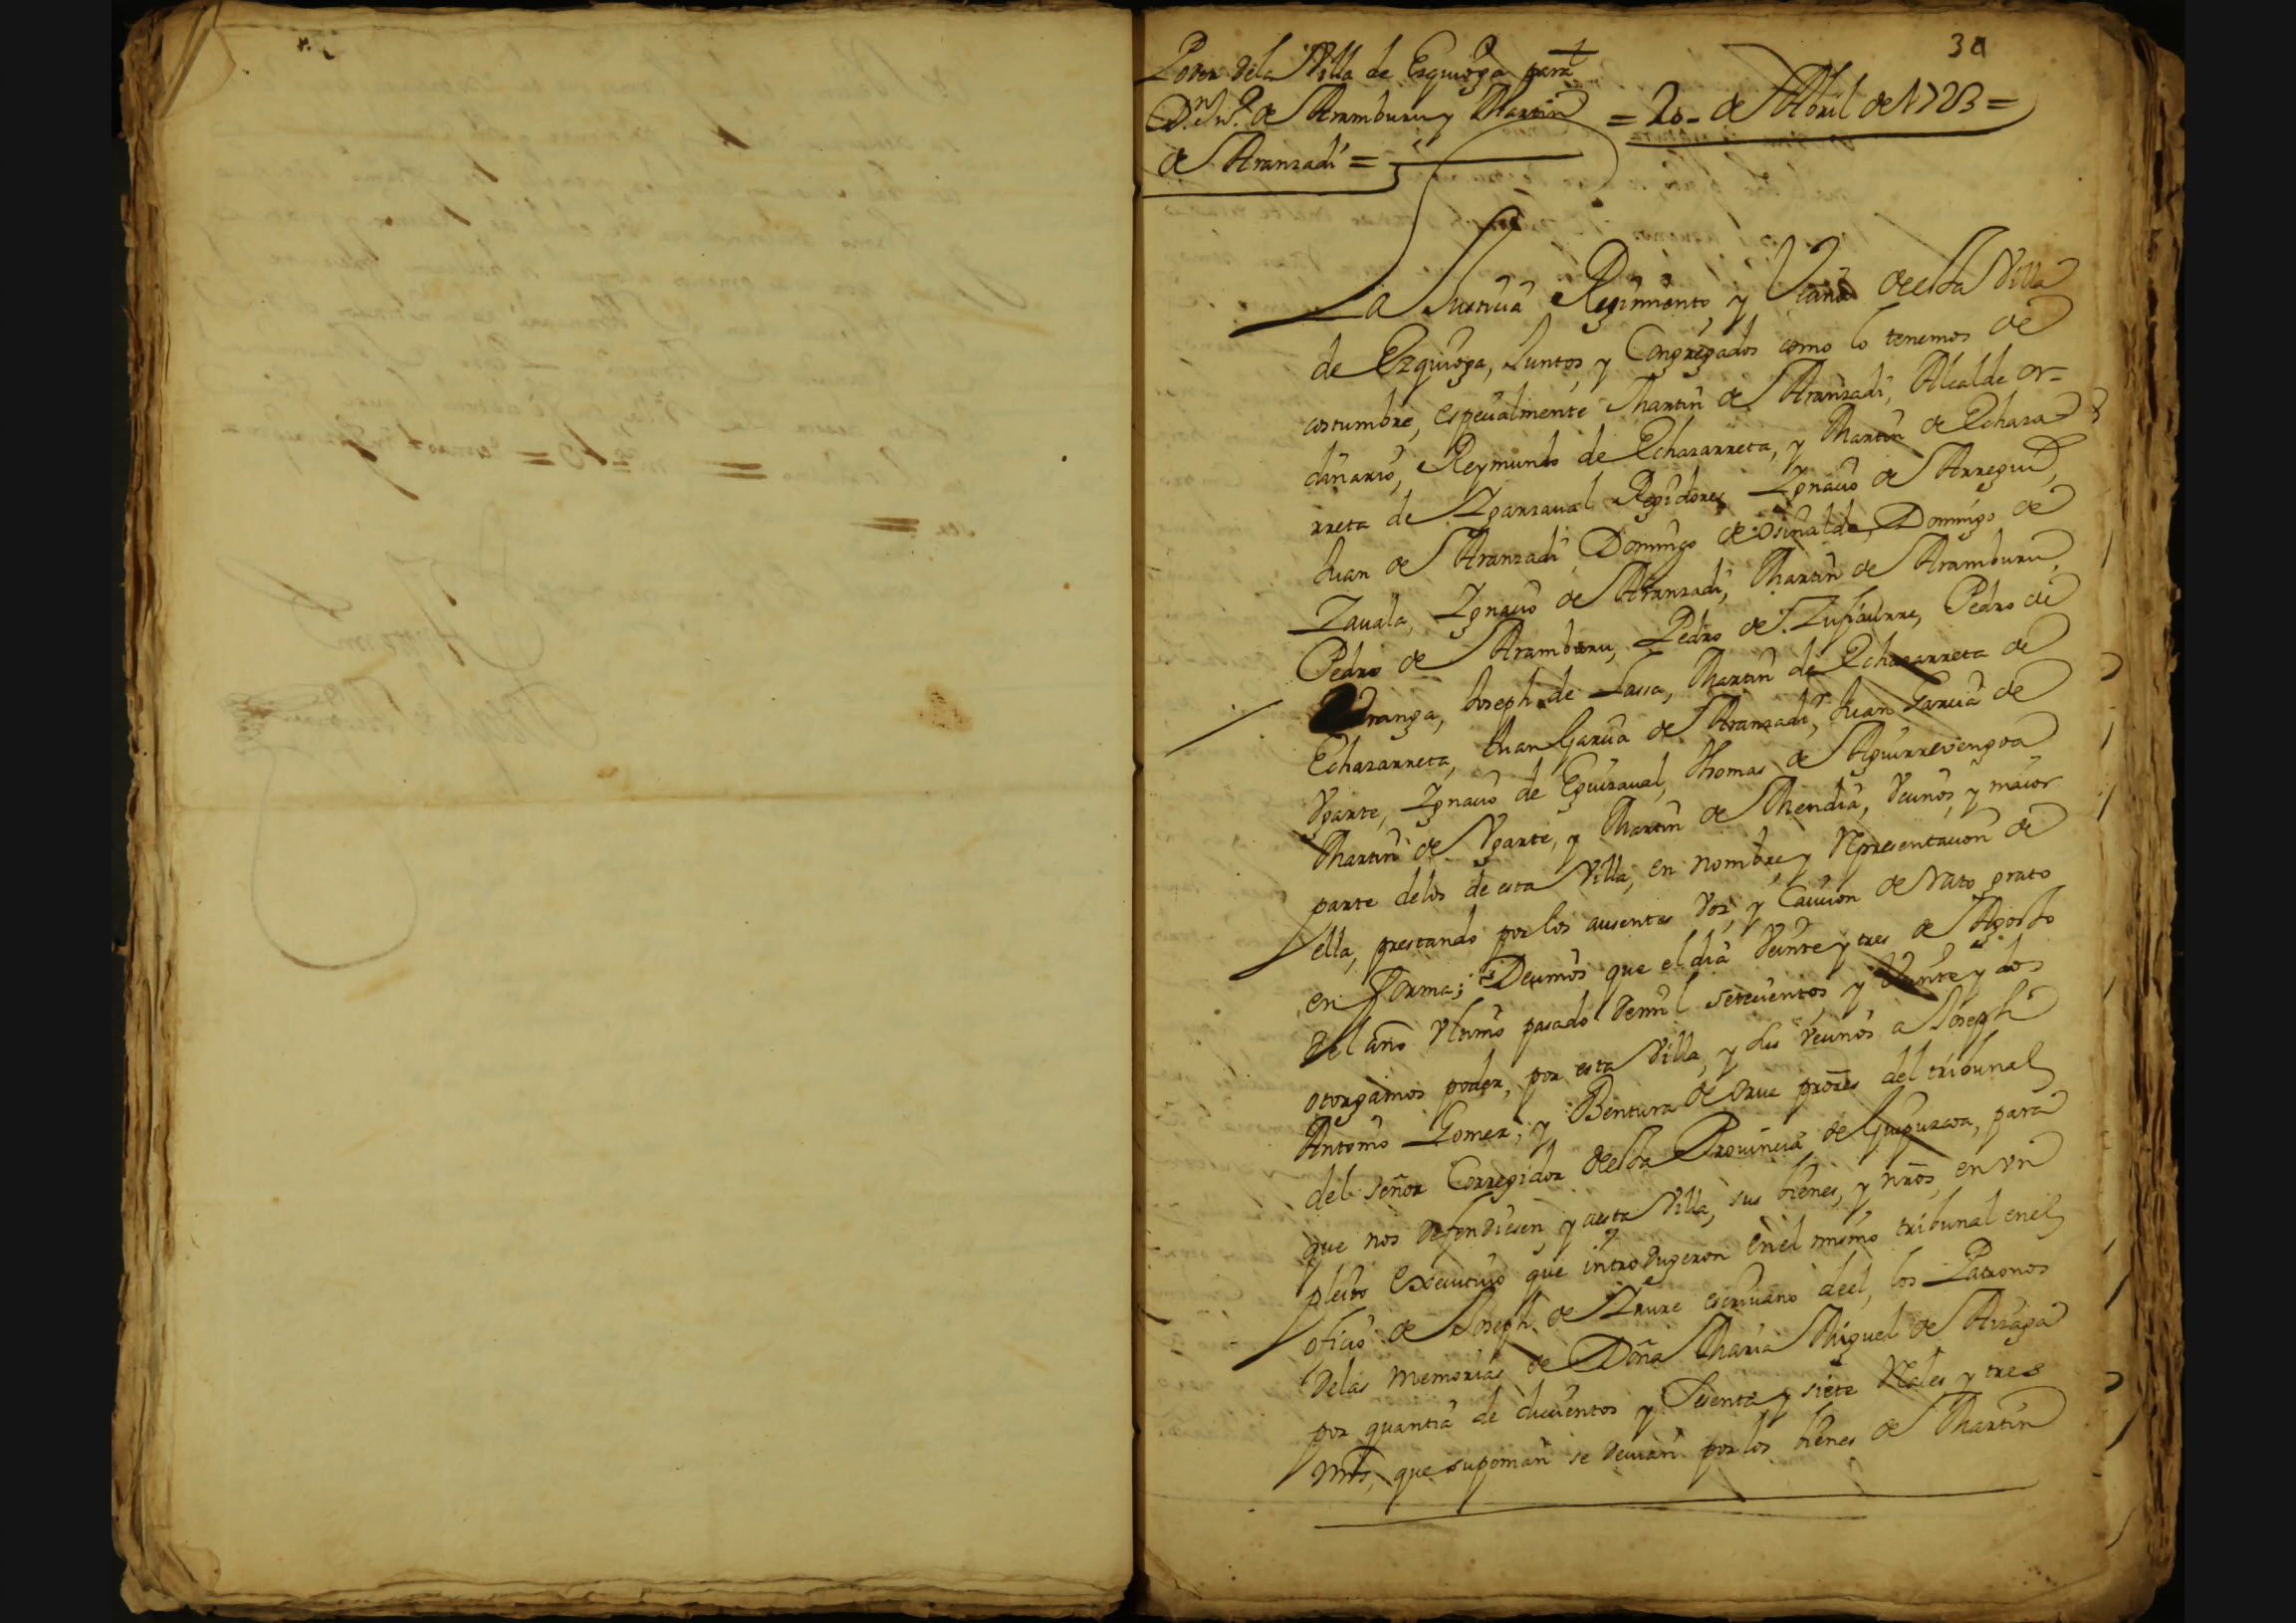 30
Poder dela Villa de Ezquioga para
Dn. Ju.º de Aramburu y Martin
de Aranzadi =
= 20 - de Abril de 1723 =
La Justicia Regimiento, y Vecinos de esta Villa
de Ezquioga, Juntos, y Congregados como lo tenemos de
costumbre, especialmente Martin de Aranzadi, Alcalde or-
dinario, Reymundo de Echazarreta, y Martin de Echaza
rreta de Igarzaual Regidores Ignacio de Arregui,
Juan de Aranzadi, Domingo de osinalde, Domingo de
Zauala, Ignacio de Aranzadi, Martin de Aramburu,
Pedro de Aramburu, Pedro de Zufiaurre, Pedro de
Joseph de Lassa, Martin de Echazarreta de
Echazarreta, Juan Garcia de Aranzadi, Juan Garcia de
Vgarte, Ignacio de Eguizaual, Thomas de Aguirrevengoa
Martin de Vgarte, y Martin de Mendia, Vecinos, y maior
parte delos de esta Villa, en nombre, y representacion de
ella, prestando por los ausentes Voz, y Caucion de rato grato
en forma; Decimos que el dia Veinte y tres de Agosto
del año Vltimo pasado demil setecientos, y Veinte y dos
otorgamos poder, por esta Villa, y sus vecinos a Joseph
Antonio Gomez, y Bentura de orue prores del tribunal
del señor Corregidor de esta Prouincia de Guipuzcoa, para
que nos defendiesen, y aesta Villa, sus bienes, y nros, en vn
pleito executiuo que introdugeron enel mismo tribunal enel
oficio de Joseph de Irure escriuano deel, los Patronos
delas memorias de Doña Maria Miguel de Arizaga
por quantia de ducientos y Sesenta y siete Reales y tres
mrs, que suponian se deuian por los bienes de Martin